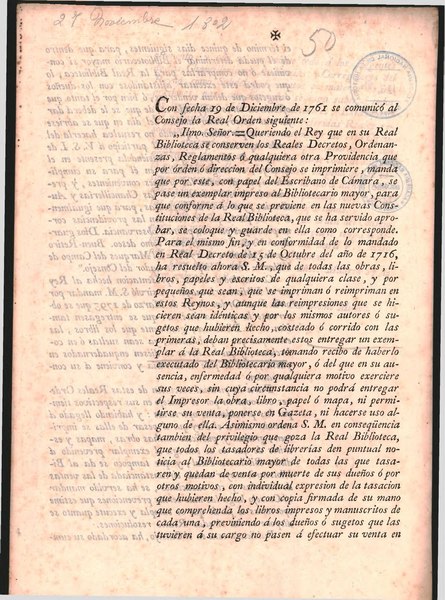 27 Noviembre 1802
50
✠
Con fecha 19 de Diciembre de 1761 se comunicó al
Consejo la Real Orden siguiente:
„Ilmo. Señor.=Queriendo el Rey que en su Real
Biblioteca se conserven los Reales Decretos, Ordenan-
zas, Reglamentos ó qualquiera otra Providencia que
por órden ó direccion del Consejo se imprimiere, manda
que por este, con papel del Escribano de Cámara, se
pase un exemplar impreso al Bibliotecario mayor, para
que conforme á lo que se previene en las nuevas Cons-
tituciones de la Real Biblioteca, que se ha servido apro-
bar, se coloque y guarde en ella como corresponde.
Para el mismo fin, y en conformidad de lo mandado
en Real Decreto de 15 de Octubre del año de 1716,
ha resuelto ahora S. M., que de todas las obras, li-
bros, papeles y escritos de qualquiera clase, y por
pequeños que sean, que se impriman ó reimpriman en
estos Reynos, y aunque las reimpresiones que se hi-
cieren sean idénticas y por los mismos autores ó su-
getos que hubieren hecho, costeado ó corrido con las
primeras, deban precisamente estos entregar un exem-
plar á la Real Biblioteca, tomando recibo de haberlo
executado del Bibliotecario mayor, ó del que en su au-
sencia, enfermedad ó por qualquiera motivo exerciere
sus veces, sin cuya circunstancia no podrá entregar
el Impresor la obra, libro, papel ó mapa, ni permi-
tirse su venta, ponerse en Gazeta, ni hacerse uso al-
guno de ella. Asimismo ordena S. M. en conseqüencia
tambien del privilegio que goza la Real Biblioteca,
que todos los tasadores de librerías den puntual no-
ticia al Bibliotecario mayor de todas las que tasa-
ren y quedan de venta por muerte de sus dueños ó por
otros motivos, con individual expresion de la tasacion
que hubieren hecho, y con copia firmada de su mano
que comprehenda los libros impresos y manuscritos de
cada una, previniendo á los dueños ó sugetos que las
tuvieren á su cargo no pasen á efectuar su venta en